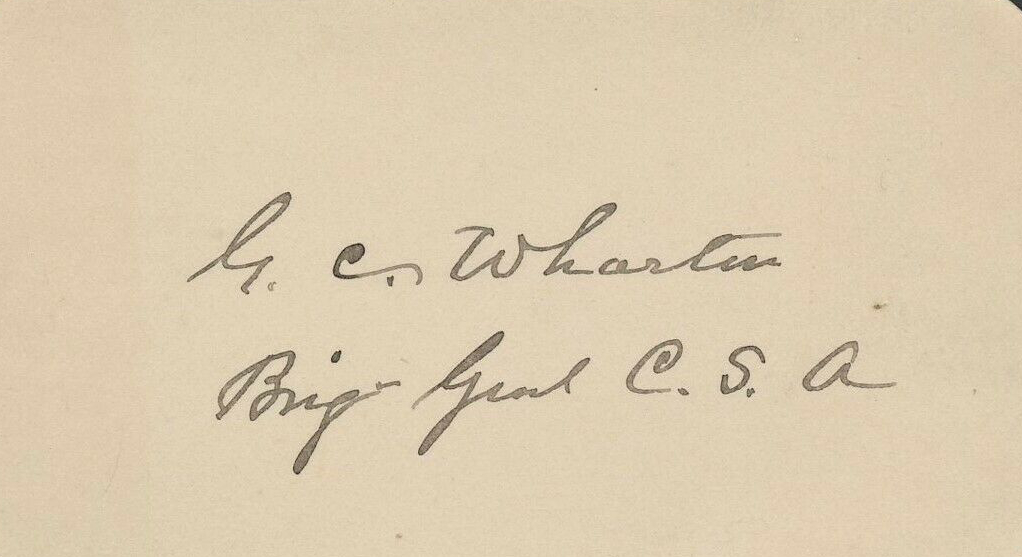 G. C. Wharton
Brig Genl C. S. A